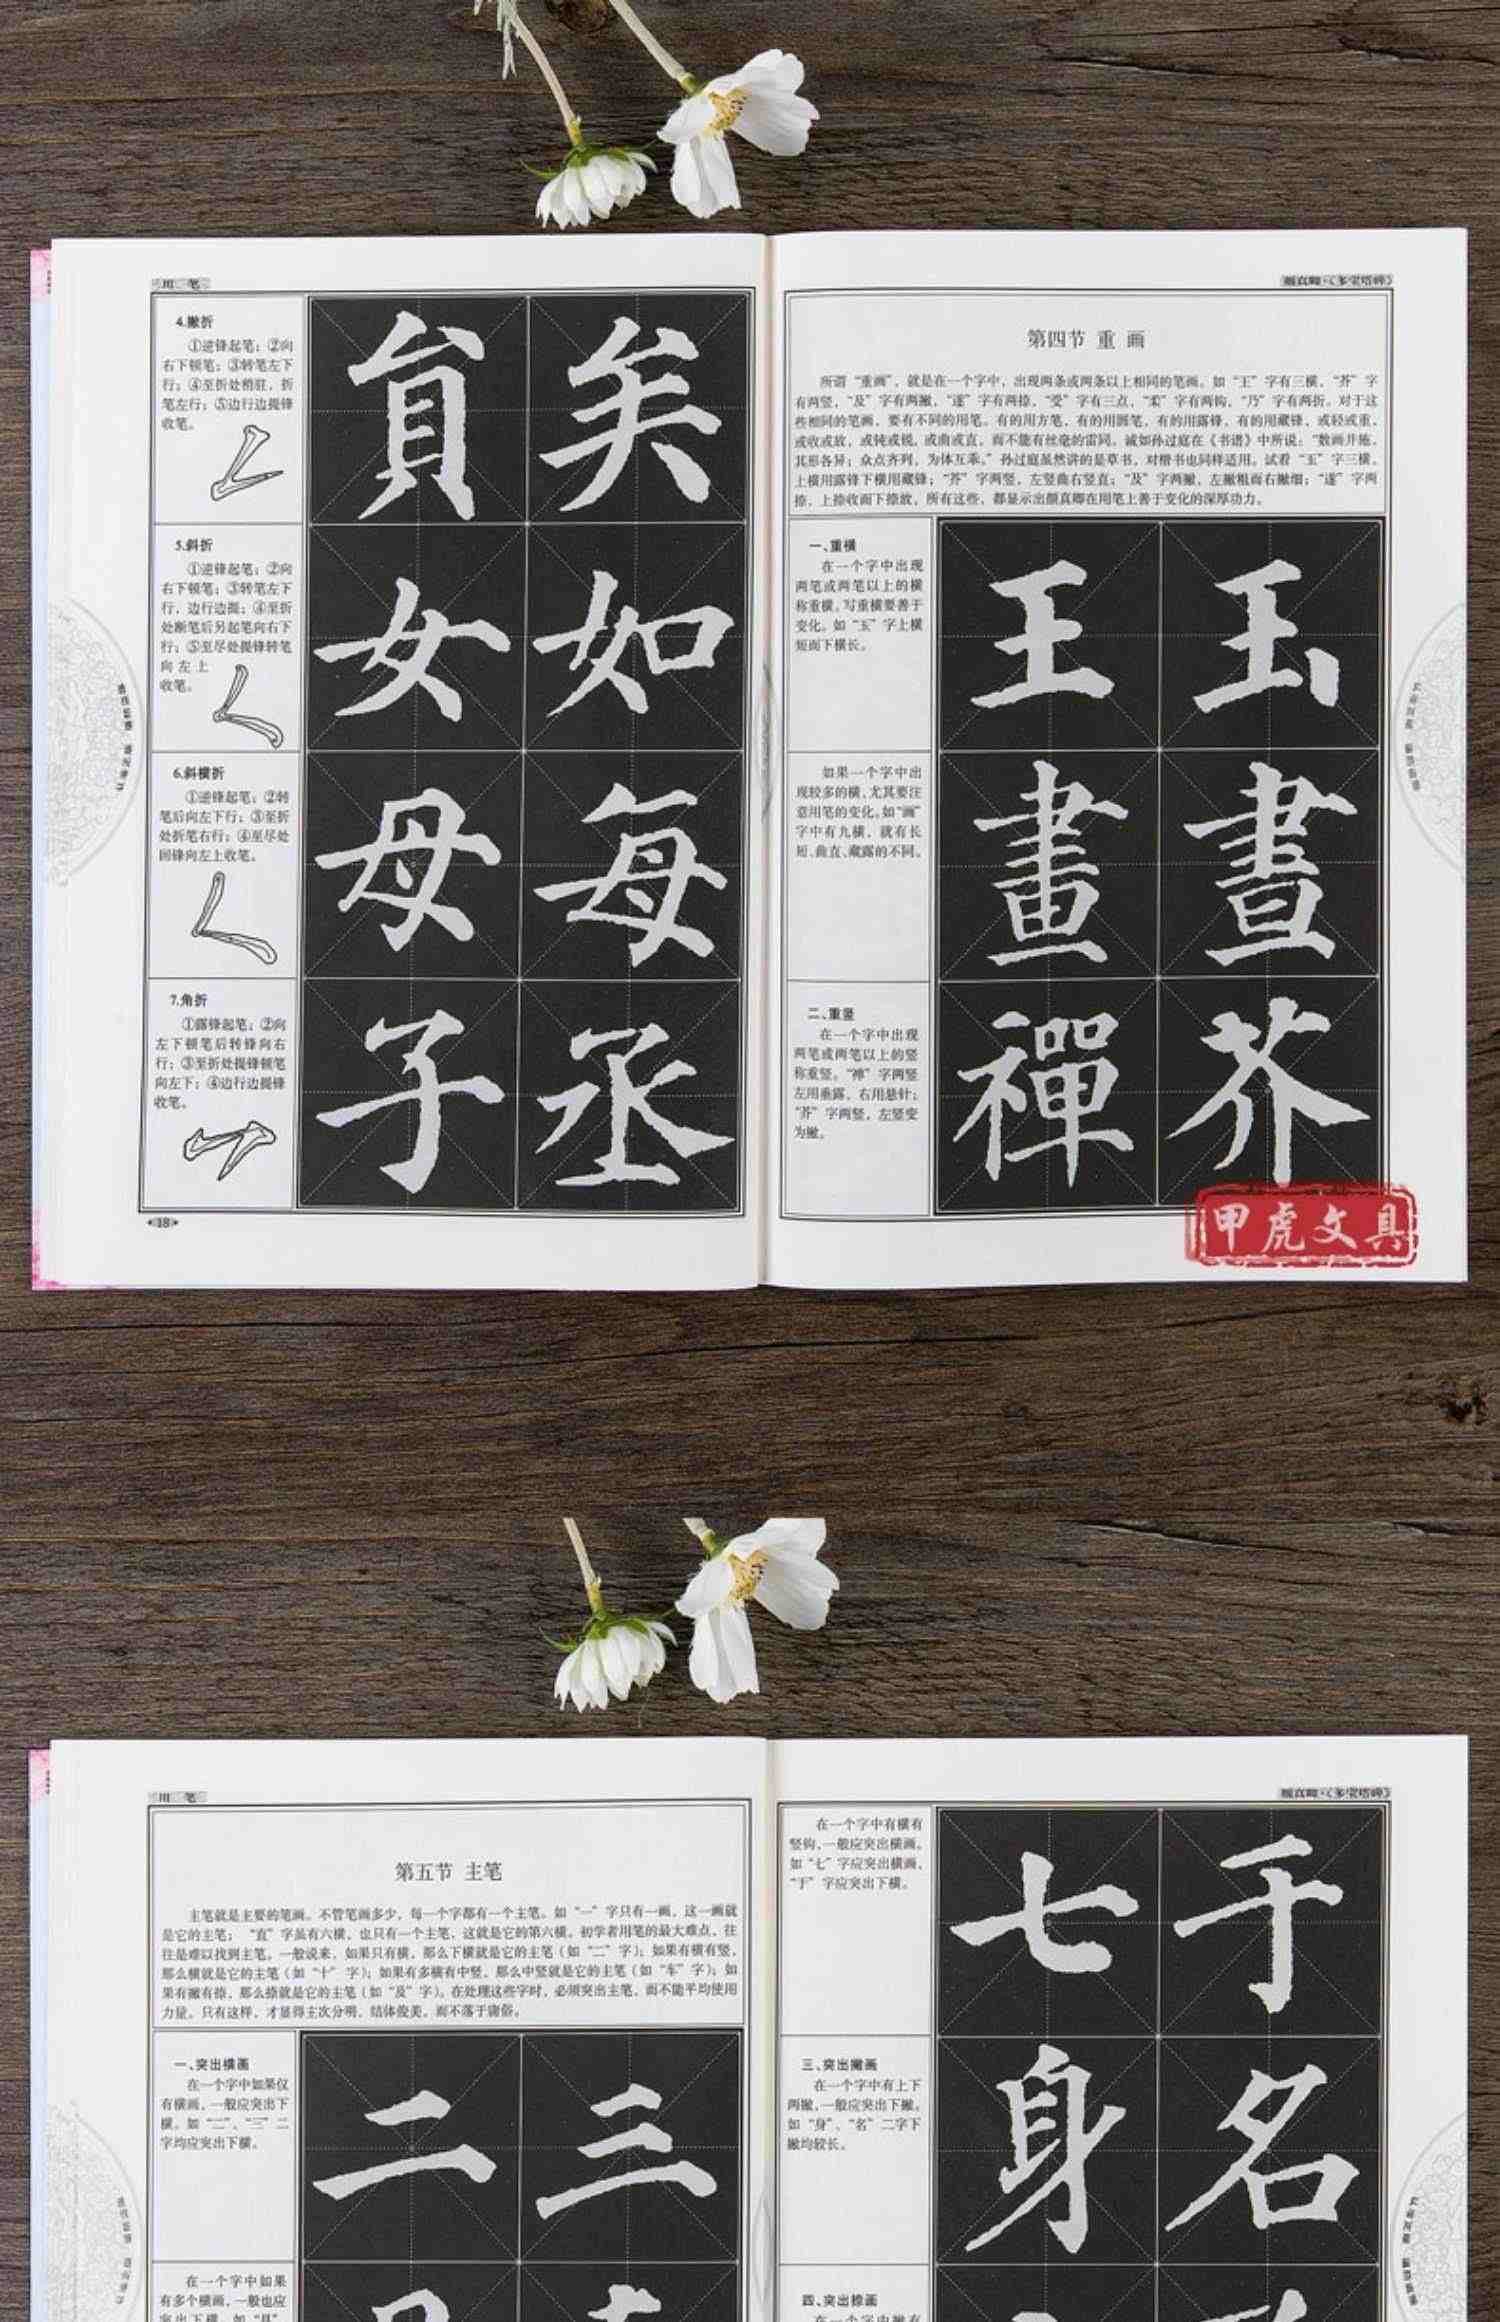 用 笔
4.撇折
①逆锋起笔；②向
右下顿笔；③转笔左下
行；④至折处稍驻，折
笔左行；⑤边行边提锋
收笔。
員 矣
5.斜折
①逆锋起笔；②向
右下顿笔；③转笔左下
行，边行边提；④至折
处断笔后另起笔向右下
行；⑤至尽处提锋转笔
向左上
收笔。
女 如
6.斜横折
①逆锋起笔；②转
笔后向左下行；③至折
处折笔右行；④至尽处
回锋向左上收笔。
母 每
7.角折
①露锋起笔；②向
左下顿笔后转锋向右
行；③至折处提锋顿笔
向左下；④边行边提锋
收笔。
子 丞
18
颜真卿·《多宝塔碑》
第四节 重 画
所谓“重画”，就是在一个字中，出现两条或两条以上相同的笔画。如“王”字有三横，“芥”字
有两竖，“及”字有两撇，“逐”字有两捺，“受”字有三点，“柔”字有两钩，“乃”字有两折。对于这
些相同的笔画，要有不同的用笔。有的用方笔，有的用圆笔，有的用露锋，有的用藏锋，或轻或重，
或收或放，或钝或锐，或曲或直，而不能有丝毫的雷同。诚如孙过庭在《书谱》中所说：“数画并施，
其形各异；众点齐列，为体互乖。”孙过庭虽然讲的是草书，对楷书也同样适用。试看“玉”字三横，
上横用露锋下横用藏锋；“芥”字两竖，左竖曲右竖直；“及”字两撇，左撇粗而右撇细；“逐”字两
捺，上捺收而下捺放，所有这些，都显示出颜真卿在用笔上善于变化的深厚功力。
一、重横
在一个字中出现
两笔或两笔以上的横
称重横。写重横要善于
变化。如“玉”字上横
短而下横长。
王 玉
如果一个字中出
现较多的横，尤其要注
意用笔的变化。如“画”
字中有九横，就有长
短、曲直、藏露的不同。
畫 晝
二、重竖
在一个字中出现
两笔或两笔以上的竖
称重竖。“禅”字两竖
左用垂露，右用悬针；
“芥”字两竖，左竖变
为撇。
禪 芥
甲虎文具
用 笔
第五节 主笔
主笔就是主要的笔画。不管笔画多少，每一个字都有一个主笔。如“一”字只有一画，这一画就
是它的主笔；“直”字虽有六横，也只有一个主笔，这就是它的第六横。初学者用笔的最大难点，往
往是难以找到主笔。一般说来，如果只有横，那么下横就是它的主笔（如“二”字）；如果有横有竖，
那么横就是它的主笔（如“十”字）；如果有多横有中竖，那么中竖就是它的主笔（如“车”字）；如
果有撇有捺，那么捺就是它的主笔（如“及”字）。在处理这些字时，必须突出主笔，而不能平均使用
力量。只有这样，才显得主次分明，结体俊美，而不落于庸俗。
一、突出横画
在一个字中如果仅
有横画，一般应突出下
横。如“二”、“三”二
字均应突出下横。
二 三
在一个字中如果
有多个横画，一般也应
颜真卿·《多宝塔碑》
在一个字中有横有
竖钩，一般应突出横画。
如“七”字应突出横画，
“于”字应突出下横。
七 于
三、突出撇画
在一个字中有上下
两撇，一般应突出下撇。
如“身”、“名”二字下
撇均较长。
身 名
四、突出捺画